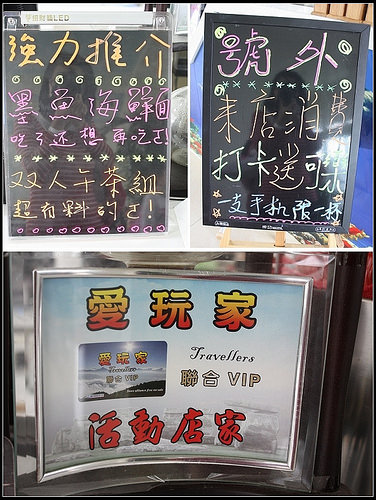 強力推介
墨魚海鮮面
吃了還想再吃!
双人午茶組
超有料的!
號外
來店消費
打卡送可樂
一支手机限一杯
愛玩家
愛玩家
Travellers
聯合VIP
Travellers
聯合 VIP
活動店家